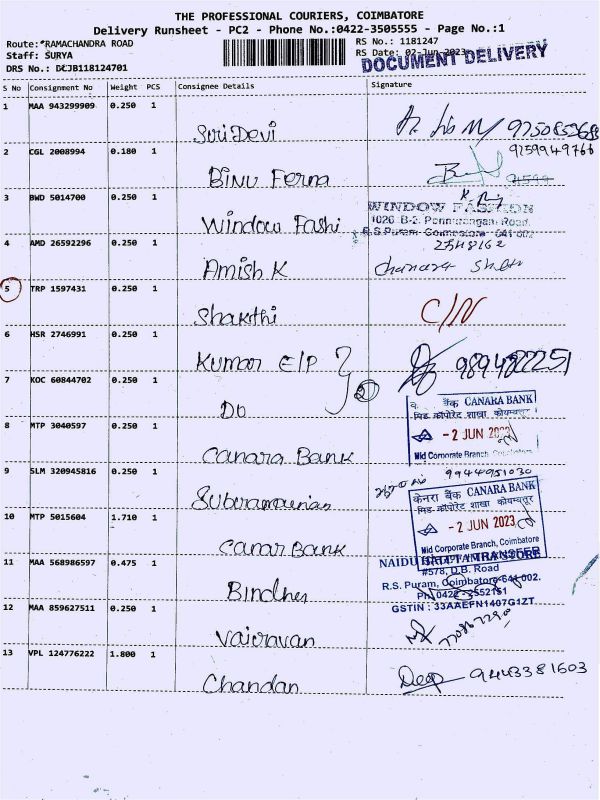 THE PROFESSIONAL COURIERS, COIMBATORE
Delivery Runsheet - PC2 - Phone No.:0422-3505555 - Page No.:1
Route:*RAMACHANDRA ROAD
RS No.: 1181247
Staff: SURYA
RS Date: 02-Jun-2023
DOCUMENT DELIVERY
DRS No.: DCJB118124701
S No Consignment No Weight PCS Consignee Details Signature
1 MAA 943299909 0.250 1
Sri Devi
2 CGL 2008994 0.180 1 9159949766
Binu Ferna
3 BWD 5014700 0.250 1
WINDOW FASHION
Window Fashi 1026 B-2 Ponnurangan Road
R.S Puram Coimbatore 641 002
4 AMD 26592296 0.250 1 2548162
Amish K
5 TRP 1597431 0.250 1
Shakthi C/N
6 HSR 2746991 0.250 1
Kumar E/P 2
7 KOC 60844702 0.250 1
Do
8 MTP 3040597 0.250 1 बैंक CANARA BANK
मिड कॉर्पोरेट शाखा
- 2 JUN 2023
Canara Bank Mid Corporate Branch
9 SLM 320945816 0.250 1 9944951030
केनरा बैंक CANARA BANK
मिड कॉर्पोरेट शाखा
10 MTP 5015604 1.710 1 - 2 JUN 2023
Canar Bank Mid Corporate Branch, Coimbatore
11 MAA 568986597 0.475 1 NAIDU
#578, D.B. Road
R.S. Puram, Coimbatore-641 002.
Ph: 0422-2552151
GSTIN : 33AAEFN1407G1ZT
12 MAA 859627511 0.250 1
Vairavan
13 VPL 124776222 1.800 1 Deep 9443381603
Chandan